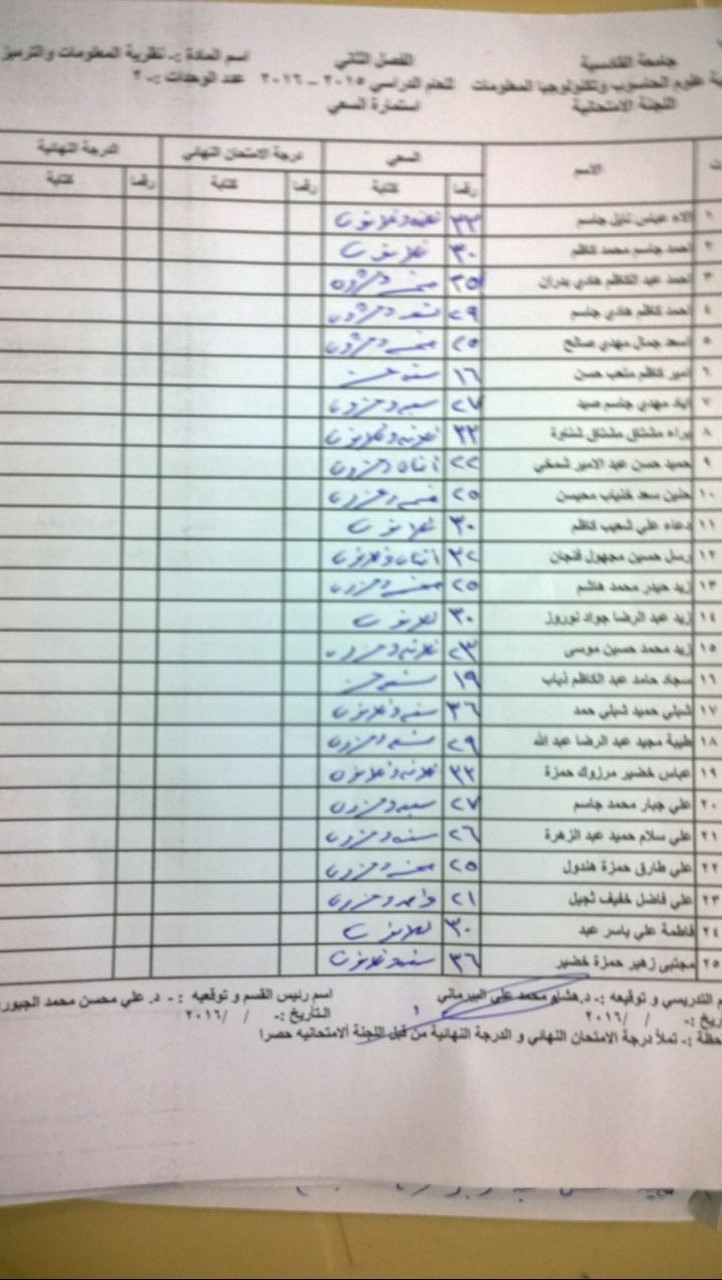 جامعة القادسية
الفصل الثاني
اسم المادة :- نظرية المعلومات والترميز
علوم الحاسوب وتكنولوجيا المعلومات
للعام الدراسي ٢٠١٥ – ٢٠١٦
عدد الوحدات :- ٢
اللجنة الامتحانية
استمارة السعي
ت الاسم السعي درجة الامتحان النهائي الدرجة النهائية
رقما كتابة رقما كتابة رقما كتابة
١ الاء عباس نايل جاسم ٣٣ ثلاثة وثلاثون
٢ احمد جاسم محمد كاظم ٣٠ ثلاثون
٣ احمد عبد الكاظم هادي بدران ٢٥ خمسة وعشرون
٤ احمد كاظم هادي جاسم ٢٩ تسعة وعشرون
٥ اسعد جمال مهدي صالح ٢٥ خمسة وعشرون
٦ امير كاظم متعب حسن ١٦ ستة عشر
٧ اياد مهدي جاسم صيد ٢٧ سبعة وعشرون
٨ براء مشتاق مشتاق ٣٣ ثلاثة وثلاثون
٩ حميد حسن عبد الامير شمخي ٢٢ اثنان وعشرون
١٠ حنين سعد محيسن ٢٥ خمسة وعشرون
١١ دعاء علي شعيب كاظم ٣٠ ثلاثون
١٢ رسل حسين مجهول فنجان ٣٢ اثنان وثلاثون
١٣ زيد حيدر محمد هاشم ٢٥ خمسة وعشرون
١٤ زيد عبد الرضا جواد نوروز ٣٠ ثلاثون
١٥ زيد محمد حسين موسى ٢٣ ثلاثة وعشرون
١٦ سجاد حامد عبد الكاظم ذياب ١٩ تسعة عشر
١٧ شبلي حميد شبلي حمد ٣٦ ستة وثلاثون
١٨ طيبة مجيد عبد الرضا عبد الله ٢٩ تسعة وعشرون
١٩ عباس خضير مرزوك حمزة ٣٣ ثلاثة وثلاثون
٢٠ علي جبار محمد جاسم ٢٧ سبعة وعشرون
٢١ علي سلام حميد عبد الزهرة ٢٦ ستة وعشرون
٢٢ علي طارق حمزة هندول ٢٥ خمسة وعشرون
٢٣ علي فاضل خفيف ثجيل ٢١ واحد وعشرون
٢٤ فاطمة علي ياسر عبد ٣٠ ثلاثون
٢٥ مجتبى زهير حمزة خضير ٣٦ ستة وثلاثون
م التدريسي و توقيعه :- د.هشام محمد علي البيرماني
اسم رئيس القسم و توقعيه :- د. علي محسن محمد الجبور
ريخ :- / / ٢٠١٦
التاريخ :- / / ٢٠١٦
حظة :- تملأ درجة الامتحان النهائي و الدرجة النهائية من قبل اللجنة الامتحانيه حصرا